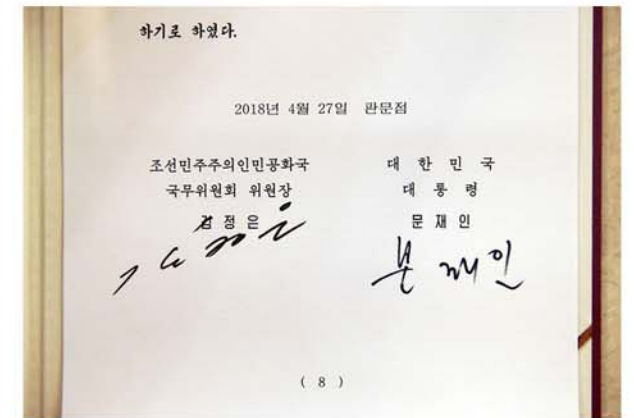 하기로 하였다.
2018년 4월 27일 판문점
조선민주주의인민공화국
국무위원회 위원장
김 정 은
대 한 민 국
대 통 령
문 재 인
문 재인
( 8 )